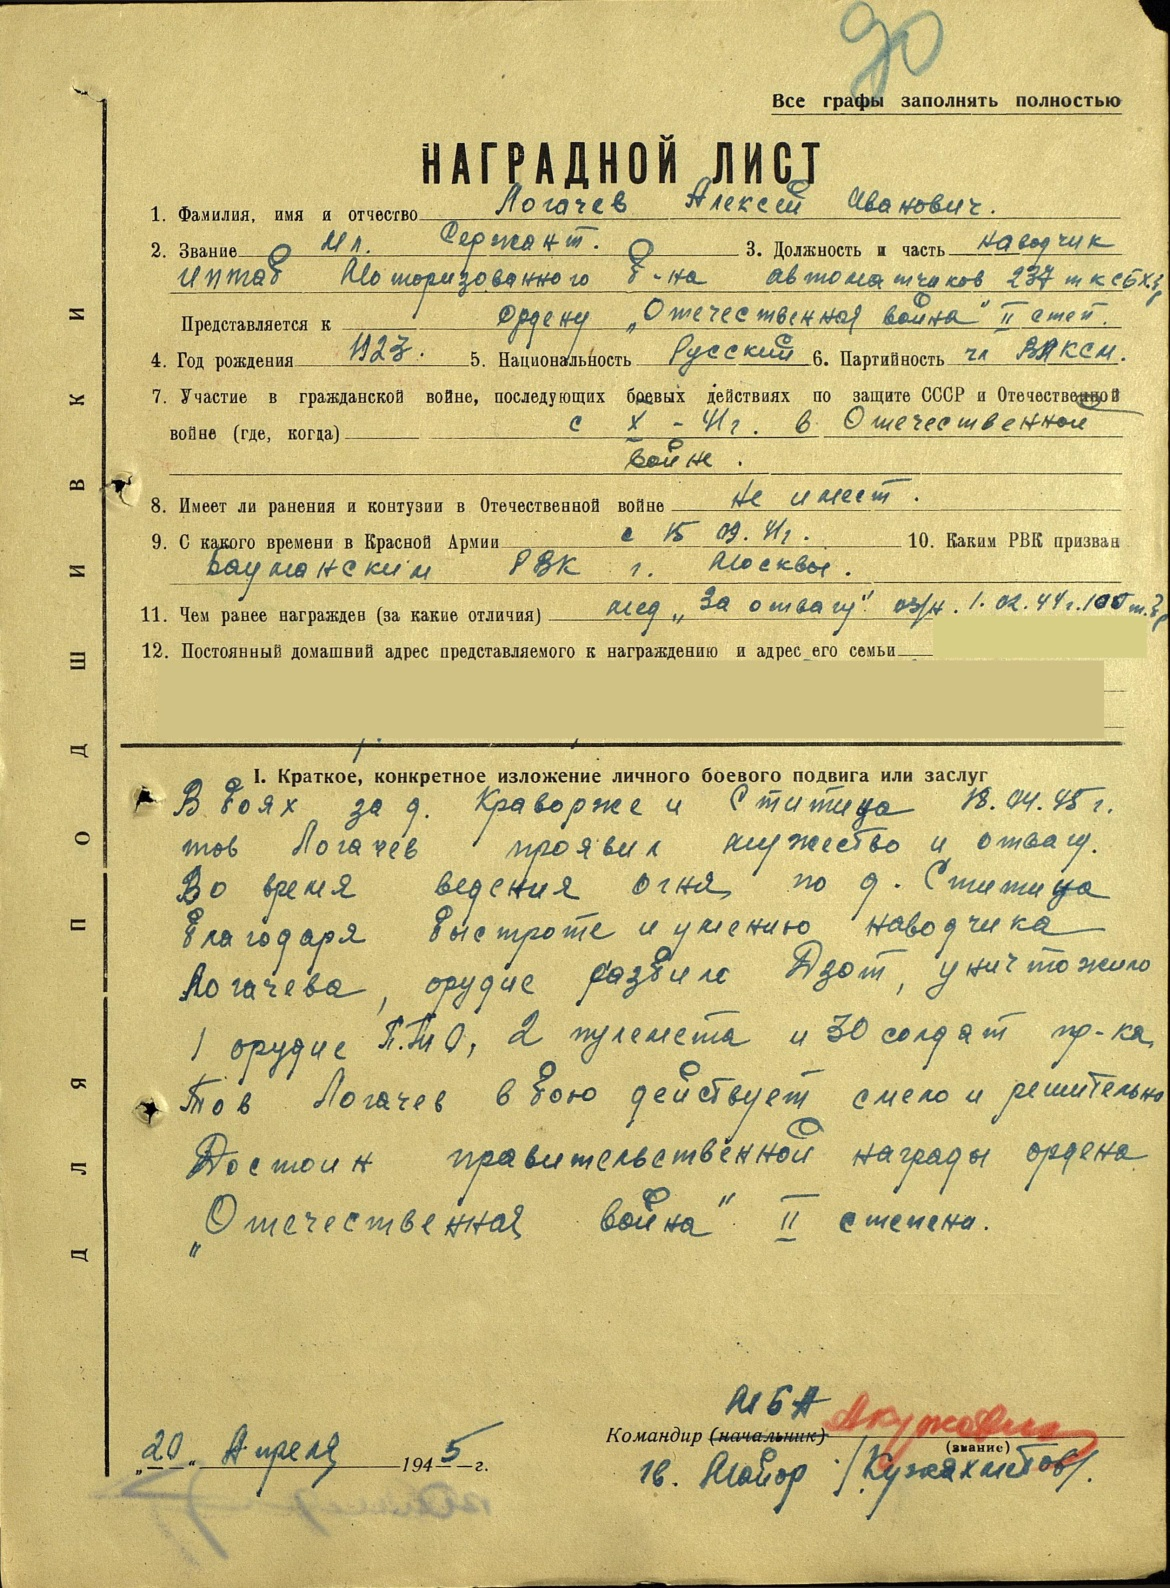 90
Все графы заполнять полностью
НАГРАДНОЙ ЛИСТ
1. Фамилия, имя и отчество Логачев Алексей Иванович.
2. Звание Мл. Сержант. 3. Должность и часть наводчик
иптаб Моторизованного б-на автоматчиков 237 т к СБХ.
Представляется к Ордену „Отечественная война" II степ.
4. Год рождения 1923. 5. Национальность Русский 6. Партийность чл ВЛКСМ.
7. Участие в гражданской войне, последующих боевых действиях по защите СССР и Отечественной
войне (где, когда) с X - 41г. в Отечественной
войне.
8. Имеет ли ранения и контузии в Отечественной войне не имеет.
9. С какого времени в Красной Армии с 15 09. 41г. 10. Каким РВК призван
Бауманским РВК г. Москвы.
11. Чем ранее награжден (за какие отличия) мед „За отвагу" 03/н. 1.02.44г.
12. Постоянный домашний адрес представляемого к награждению и адрес его семьи
I. Краткое, конкретное изложение личного боевого подвига или заслуг
В боях за д. Краворже и Ститица 18.04.45 г.
тов Логачев проявил мужество и отвагу.
Во время ведения огня по д. Ститица
благодаря быстроте и умению наводчика
Логачева, орудие разбило Дзот, уничтожило
1 орудие П.Т.О, 2 пулемета и 30 солдат пр-ка,
Тов Логачев в бою действует смело и решительно
Достоин правительственной награды ордена
„Отечественная война" II степени.
МБА
Командир (начальник)
(звание)
„20" Апреля 1945 г.
гв. Майор /Кужахметов/.
ДЛЯ ПОДШИВКИ